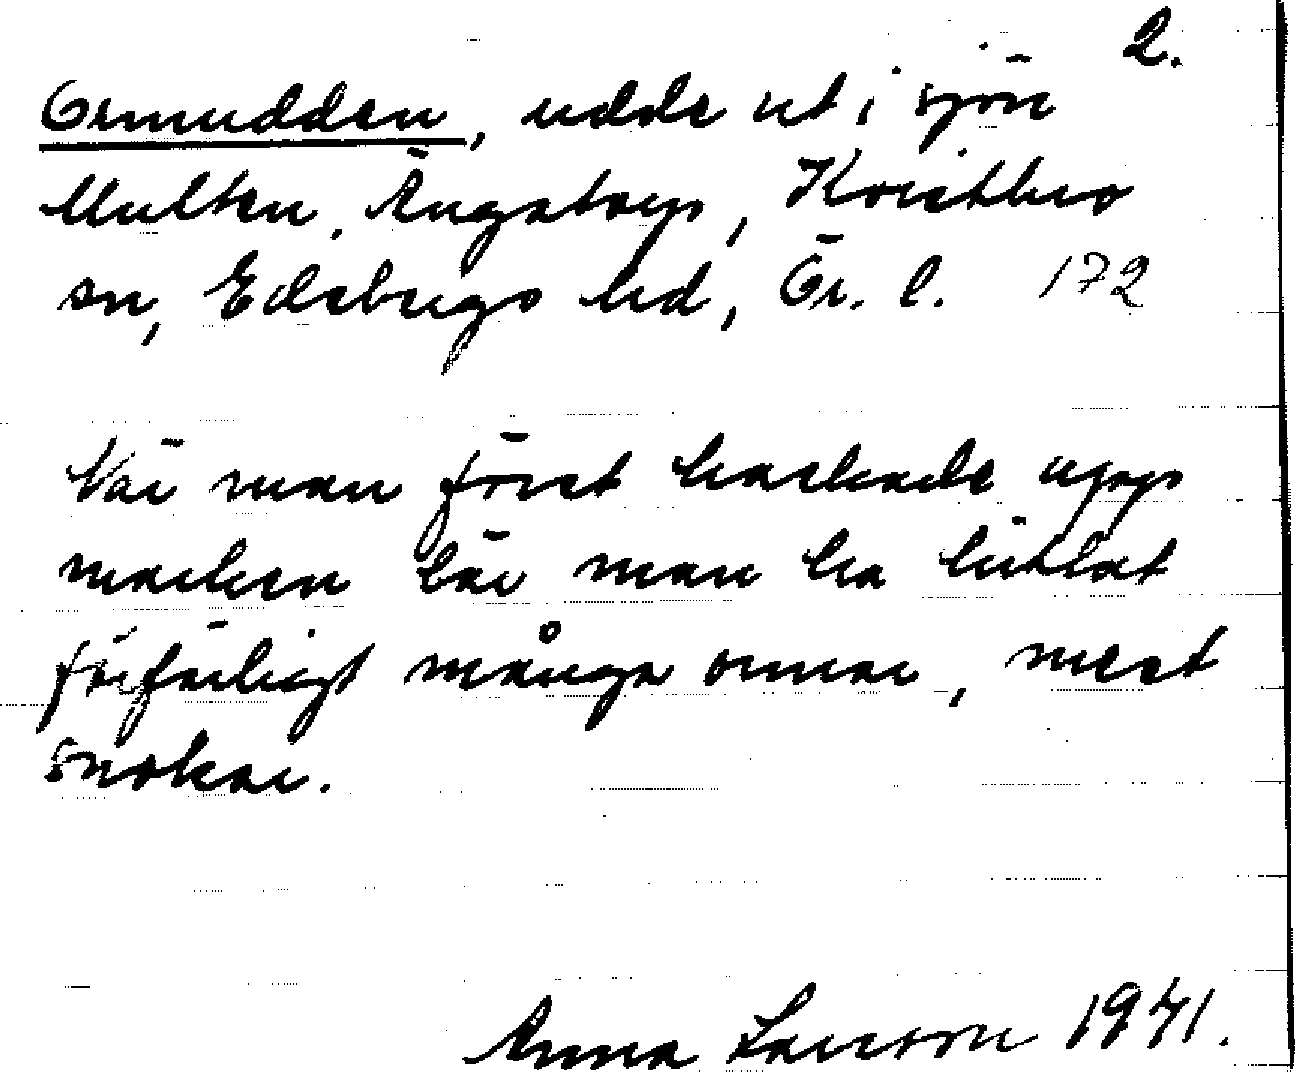 2.
Ormudden, udde ut i sjön
Multen. Ängatorp, Kvistbro
sn, Edsbergs hd, Ör. l. 172
När man först harkade upp
marken lär man ha hittat
förfärligt många ormar, mest
snokar.
Anna Larsson 1941.